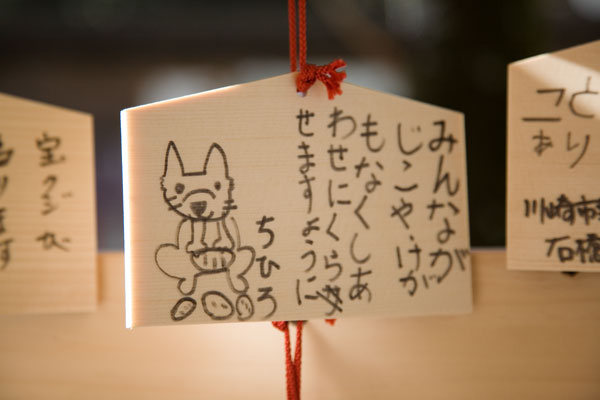 みんなが
じこや、けが
もなくしあ
わせにくら
せますように
ちひろ
宝クジが
ります
川崎市
石橋